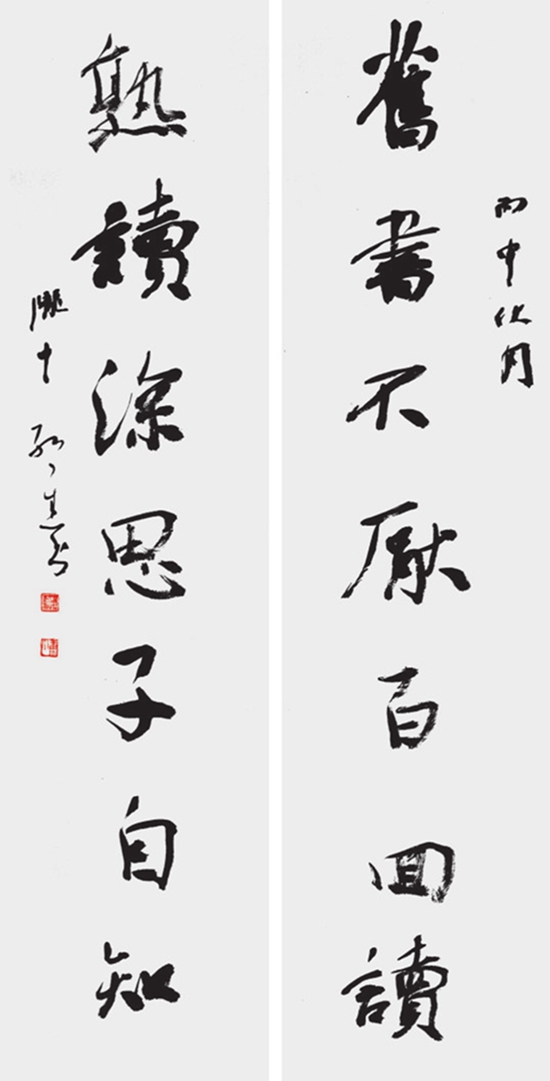 丙申伏月
舊書不厭百回讀
熟讀深思子自知